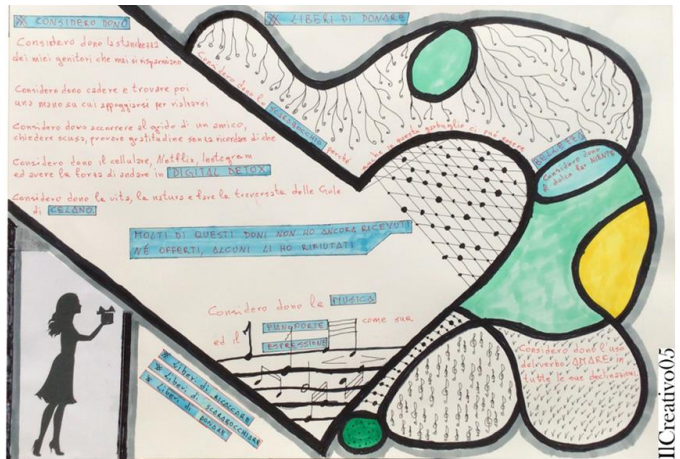 ※ CONSIDERO DONO
Considero dono la stanchezza
dei miei genitori che mai si risparmiano
Considero dono cadere e trovare poi
una mano su cui appoggiarsi per rialzarsi
Considero dono accorrere al grido di un amico,
chiedere scusa, provare gratitudine senza ricordare di che
Considero dono il cellulare, Netflix, Instagram
ed avere la forza di andare in DIGITAL DETOX
Considero dono la vita, la natura e fare la traversata delle Gole
di CELANO
※ LIBERI DI DONARE
Considero dono lo SCARABOCCHIO perché
anche in questo garbuglio ci può essere
BELLEZZA
Considero dono
il dolce far NIENTE
MOLTI DI QUESTI DONI NON HO ANCORA RICEVUTI
NÉ OFFERTI, ALCUNI LI HO RIFIUTATI
Considero dono la MUSICA
ed il PIANOFORTE come sua
ESPRESSIONE
Considero dono l'uso
del verbo AMARE in
tutte le sue declinazioni
※ Liberi di
※ Liberi di SCARABOCCHIARE
※ Liberi di DONARE
IlCreativo05